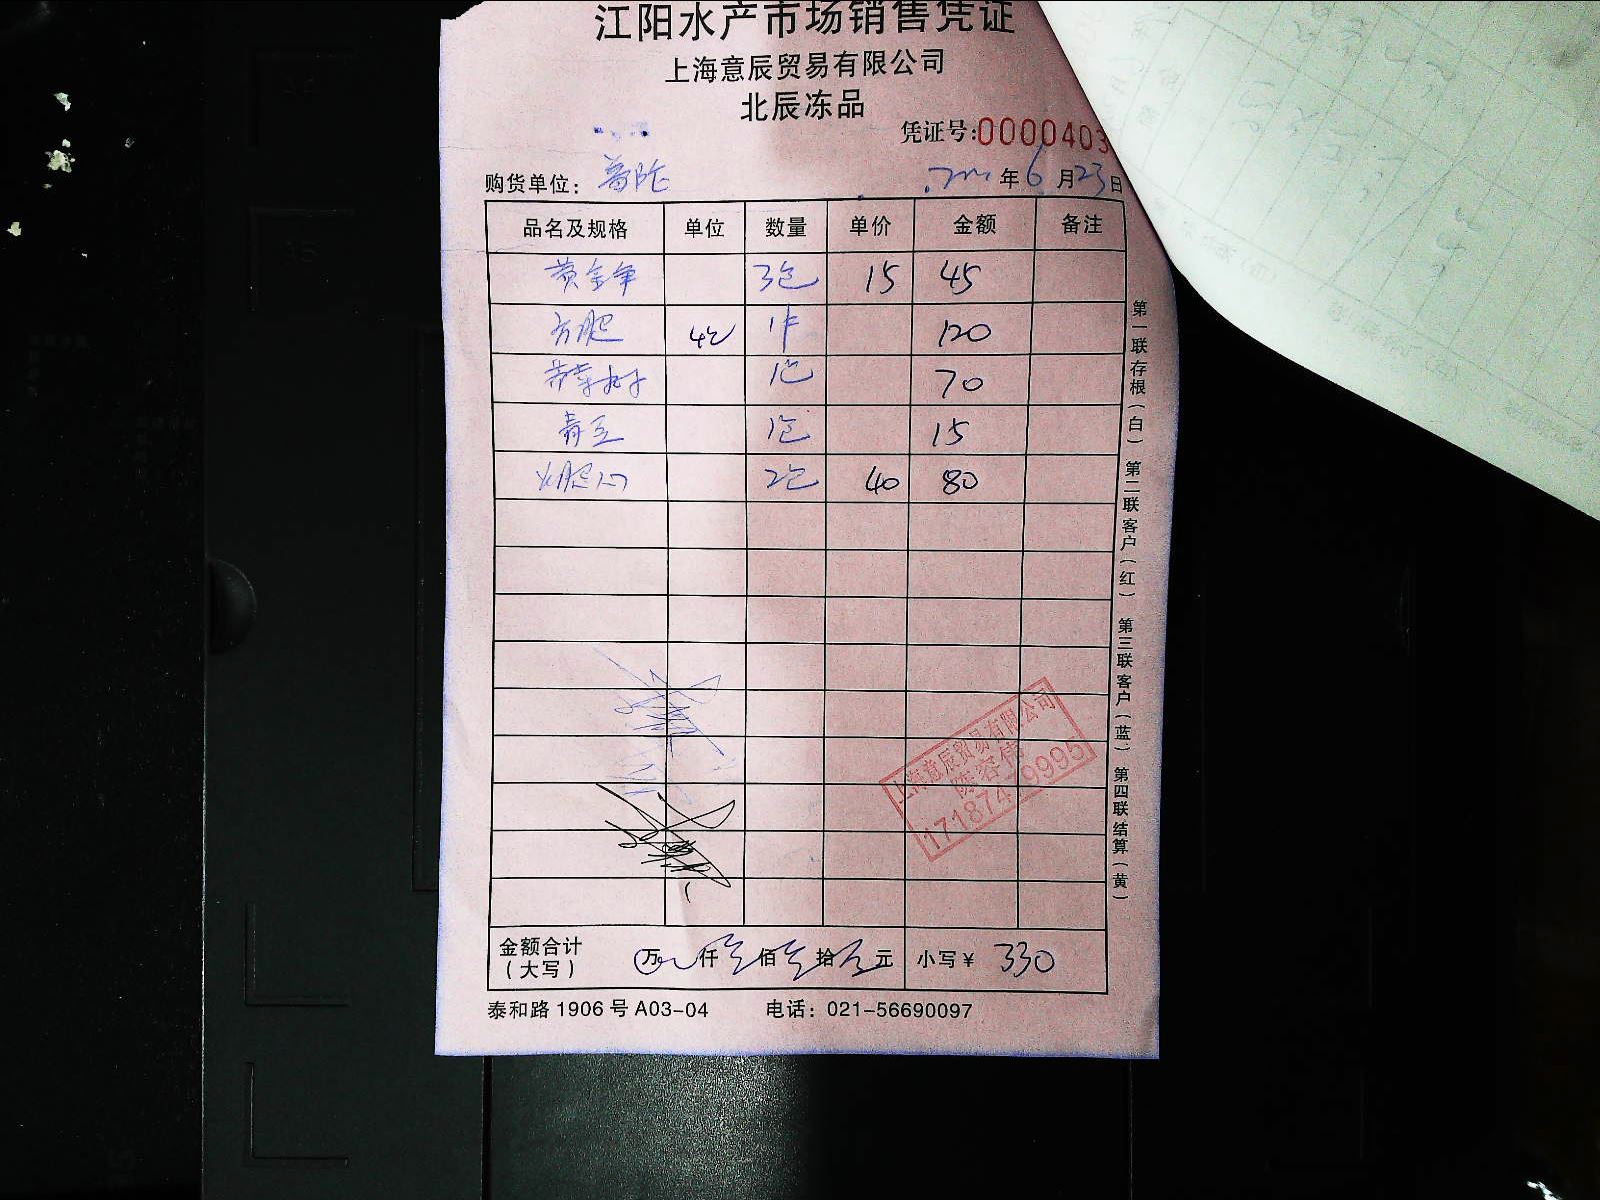 江阳水产市场销售凭证
上海意辰贸易有限公司
北辰冻品
凭证号:0000403
购货单位: 普陀 年6月23日
品名及规格 单位 数量 单价 金额 备注
3包 15 45
方肥 1件 120
1包 70
青豆 1包 15
2包 40 80
上海意辰贸易有限公司
金额合计
(大写) 万 仟 佰 拾 元 小写¥ 330
泰和路1906号A03-04 电话: 021-56690097
第一联存根(白) 第二联客户(红) 第三联客户(蓝) 第四联结算(黄)